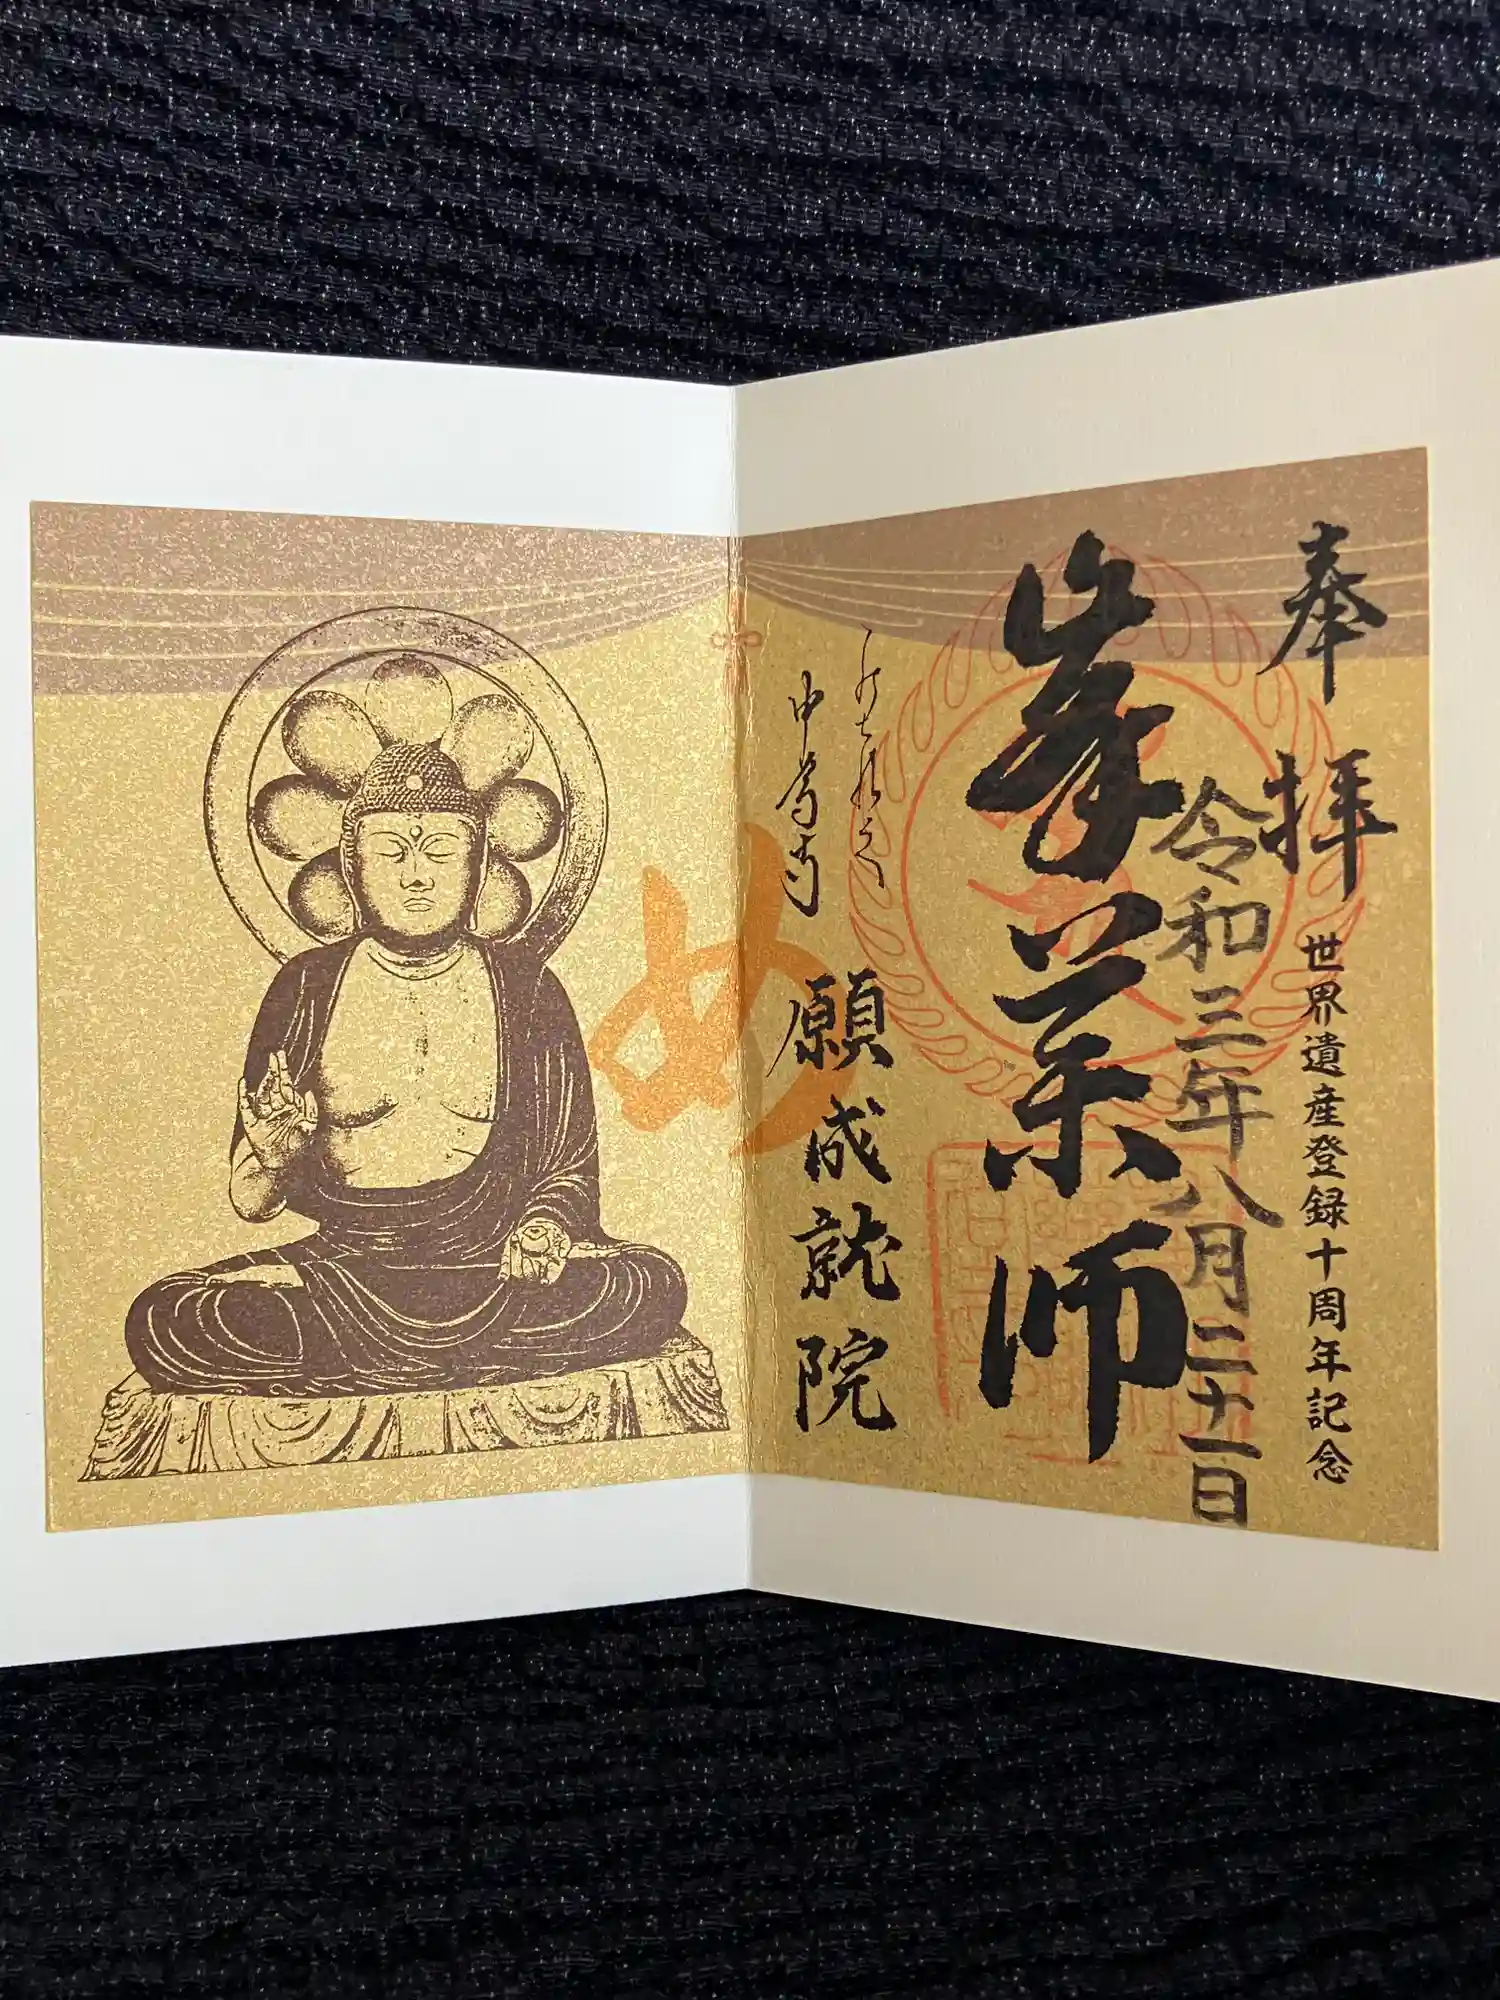 奉拝
世界遺産登録十周年記念
令和三年八月二十一日
峯薬師
中尊寺
願成就院
め